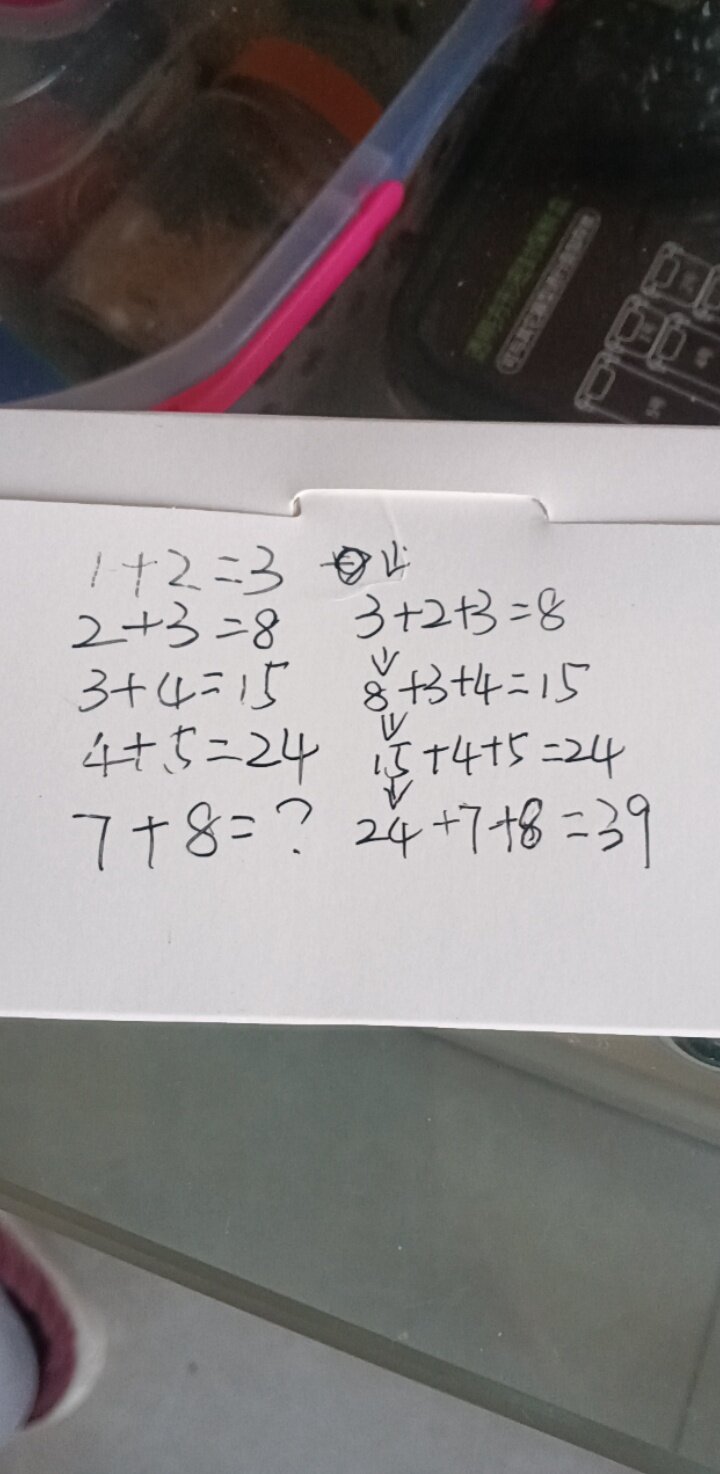 1+2=3 ↓
2+3=8 3+2+3=8
↓
3+4=15 8+3+4=15
↓
4+5=24 15+4+5=24
↓
7+8=? 24+7+8=39